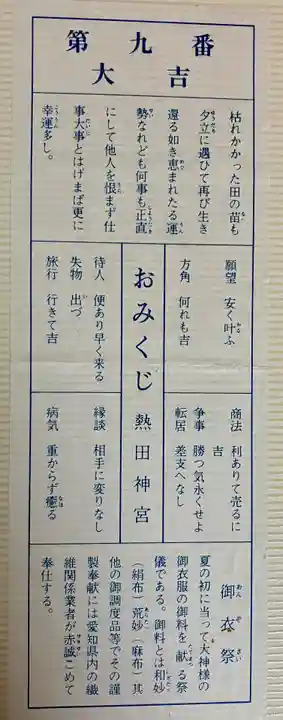 第九番
大吉
枯れかかった田の苗も
夕立に遇ひて再び生き
還る如き恵まれたる運
勢なれども何事も正直
にして他人を恨まず仕
事大事とはげまば更に
幸運多し。
願望 安く叶ふ
方角 何れも吉
商法 利ありて売るに
吉
争事 勝つ気永くせよ
転居 差支へなし
おみくじ 熱田神宮
待人 便あり早く来る
失物 出づ
旅行 行きて吉
縁談 相手に変りなし
病気 重からず癒る
御衣祭
夏の初に当って大神様の
御衣服の御料を献る祭
儀である。御料とは和妙
(絹布)荒妙(麻布)其
他の御調度品等でその謹
製奉献には愛知県内の繊
維関係業者が赤誠こめて
奉仕する。